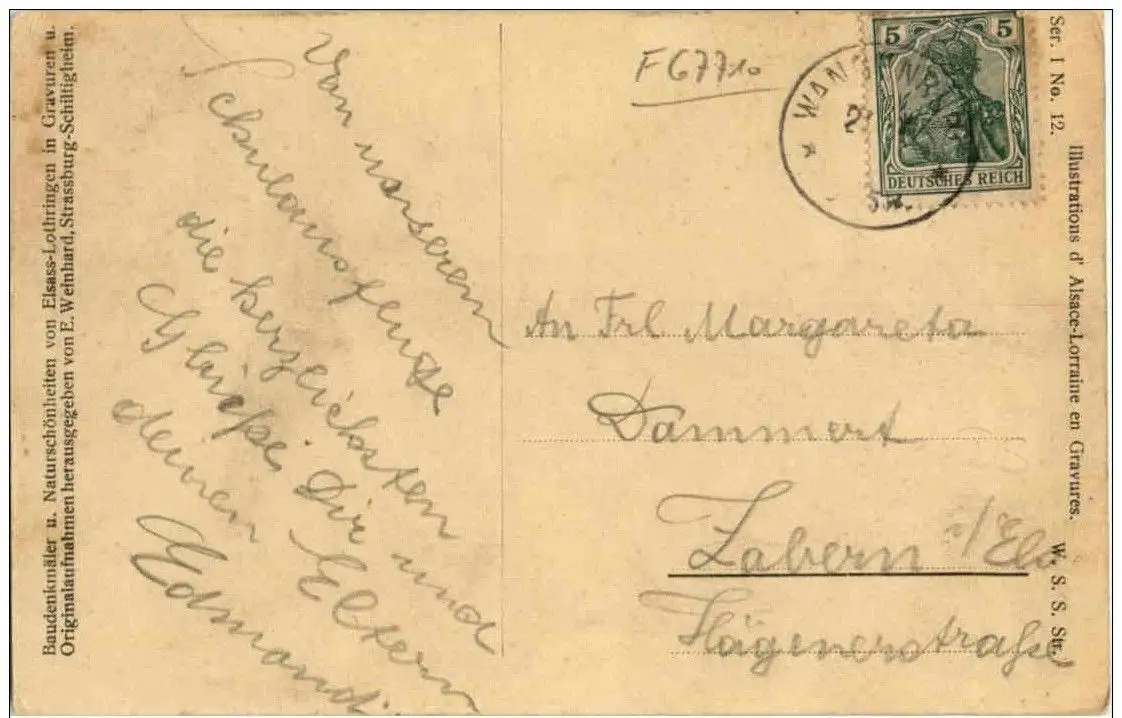 Baudenkmäler u. Naturschönheiten von Elsass-Lothringen in Gravuren u.
Originalaufnahmen herausgegeben von E. Weinhard, Strassburg-Schiltigheim.
Von unserem
die herzlichsten
Grüße. Dir und
deinen Eltern
Edmond
F67710
5 5
DEUTSCHES REICH
An Frl Margareta
Dammert
Zabern i/Els
Hägenerstraße
Ser. I No. 12. Illustrations d' Alsace-Lorraine en Gravures. W. S. S. Str.